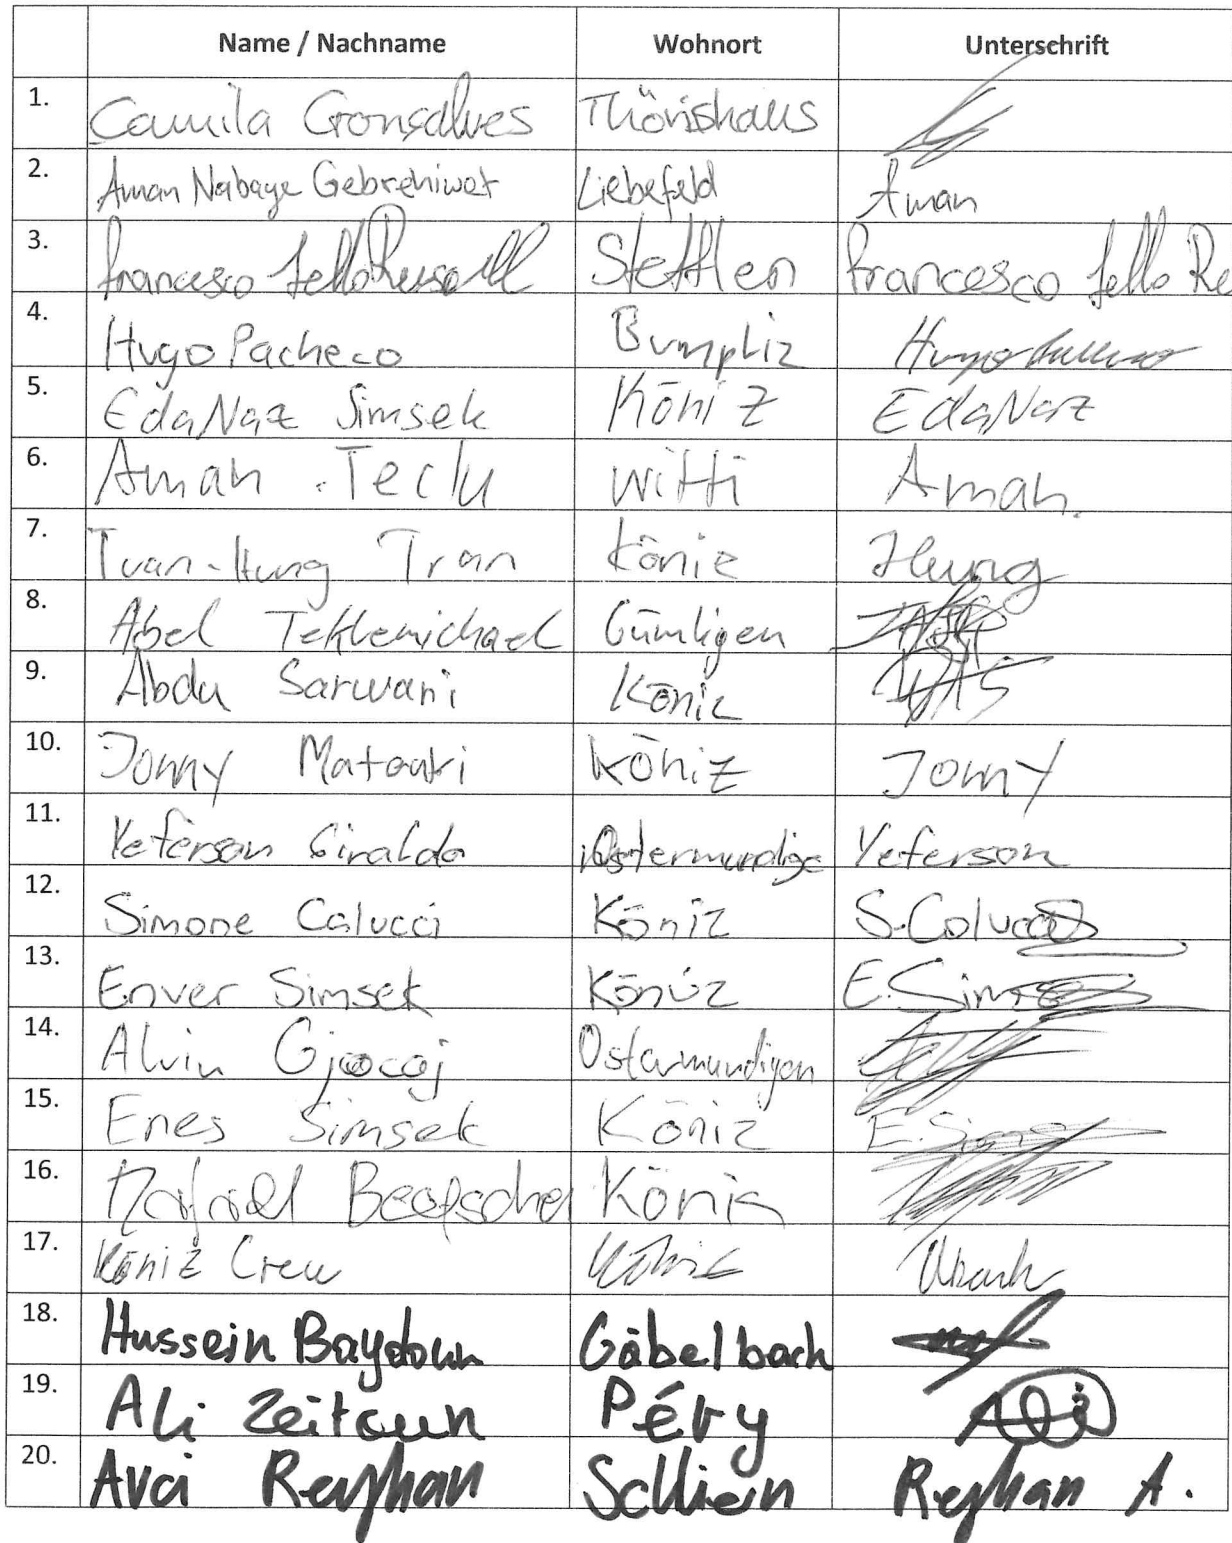 Name / Nachname Wohnort Unterschrift
1. Camila Gonsalves Thörishaus
2. Aman Nabaye Gebrehiwet Liebefeld Aman
3. Francesco Stettlen Francesco
4. Hugo Pacheco Bumpliz Hugo
5. EdaNaz Simsek Köniz EdaNaz
6. Aman Teclu Witti Aman.
7. Tuan-Hung Tran Köniz Hung
8. Abel Teklemichael Gümligen
9. Abdu Sarwari Köniz
10. Jonny Köniz Jonny
11. Yeferson Giraldo Ostermundige Yeferson
12. Simone Calucci Köniz S. Colucci
13. Enver Simsek Köniz E. Simsek
14. Alvin Ostermundigen
15. Enes Simsek Köniz E. Sims
16. Köniz
17. Köniz Crew Köniz
18. Hussein Baydoun Gäbelbach
19. Ali Zeitoun Péry Ali
20. Avci Reyhan Schliern Reyhan A.